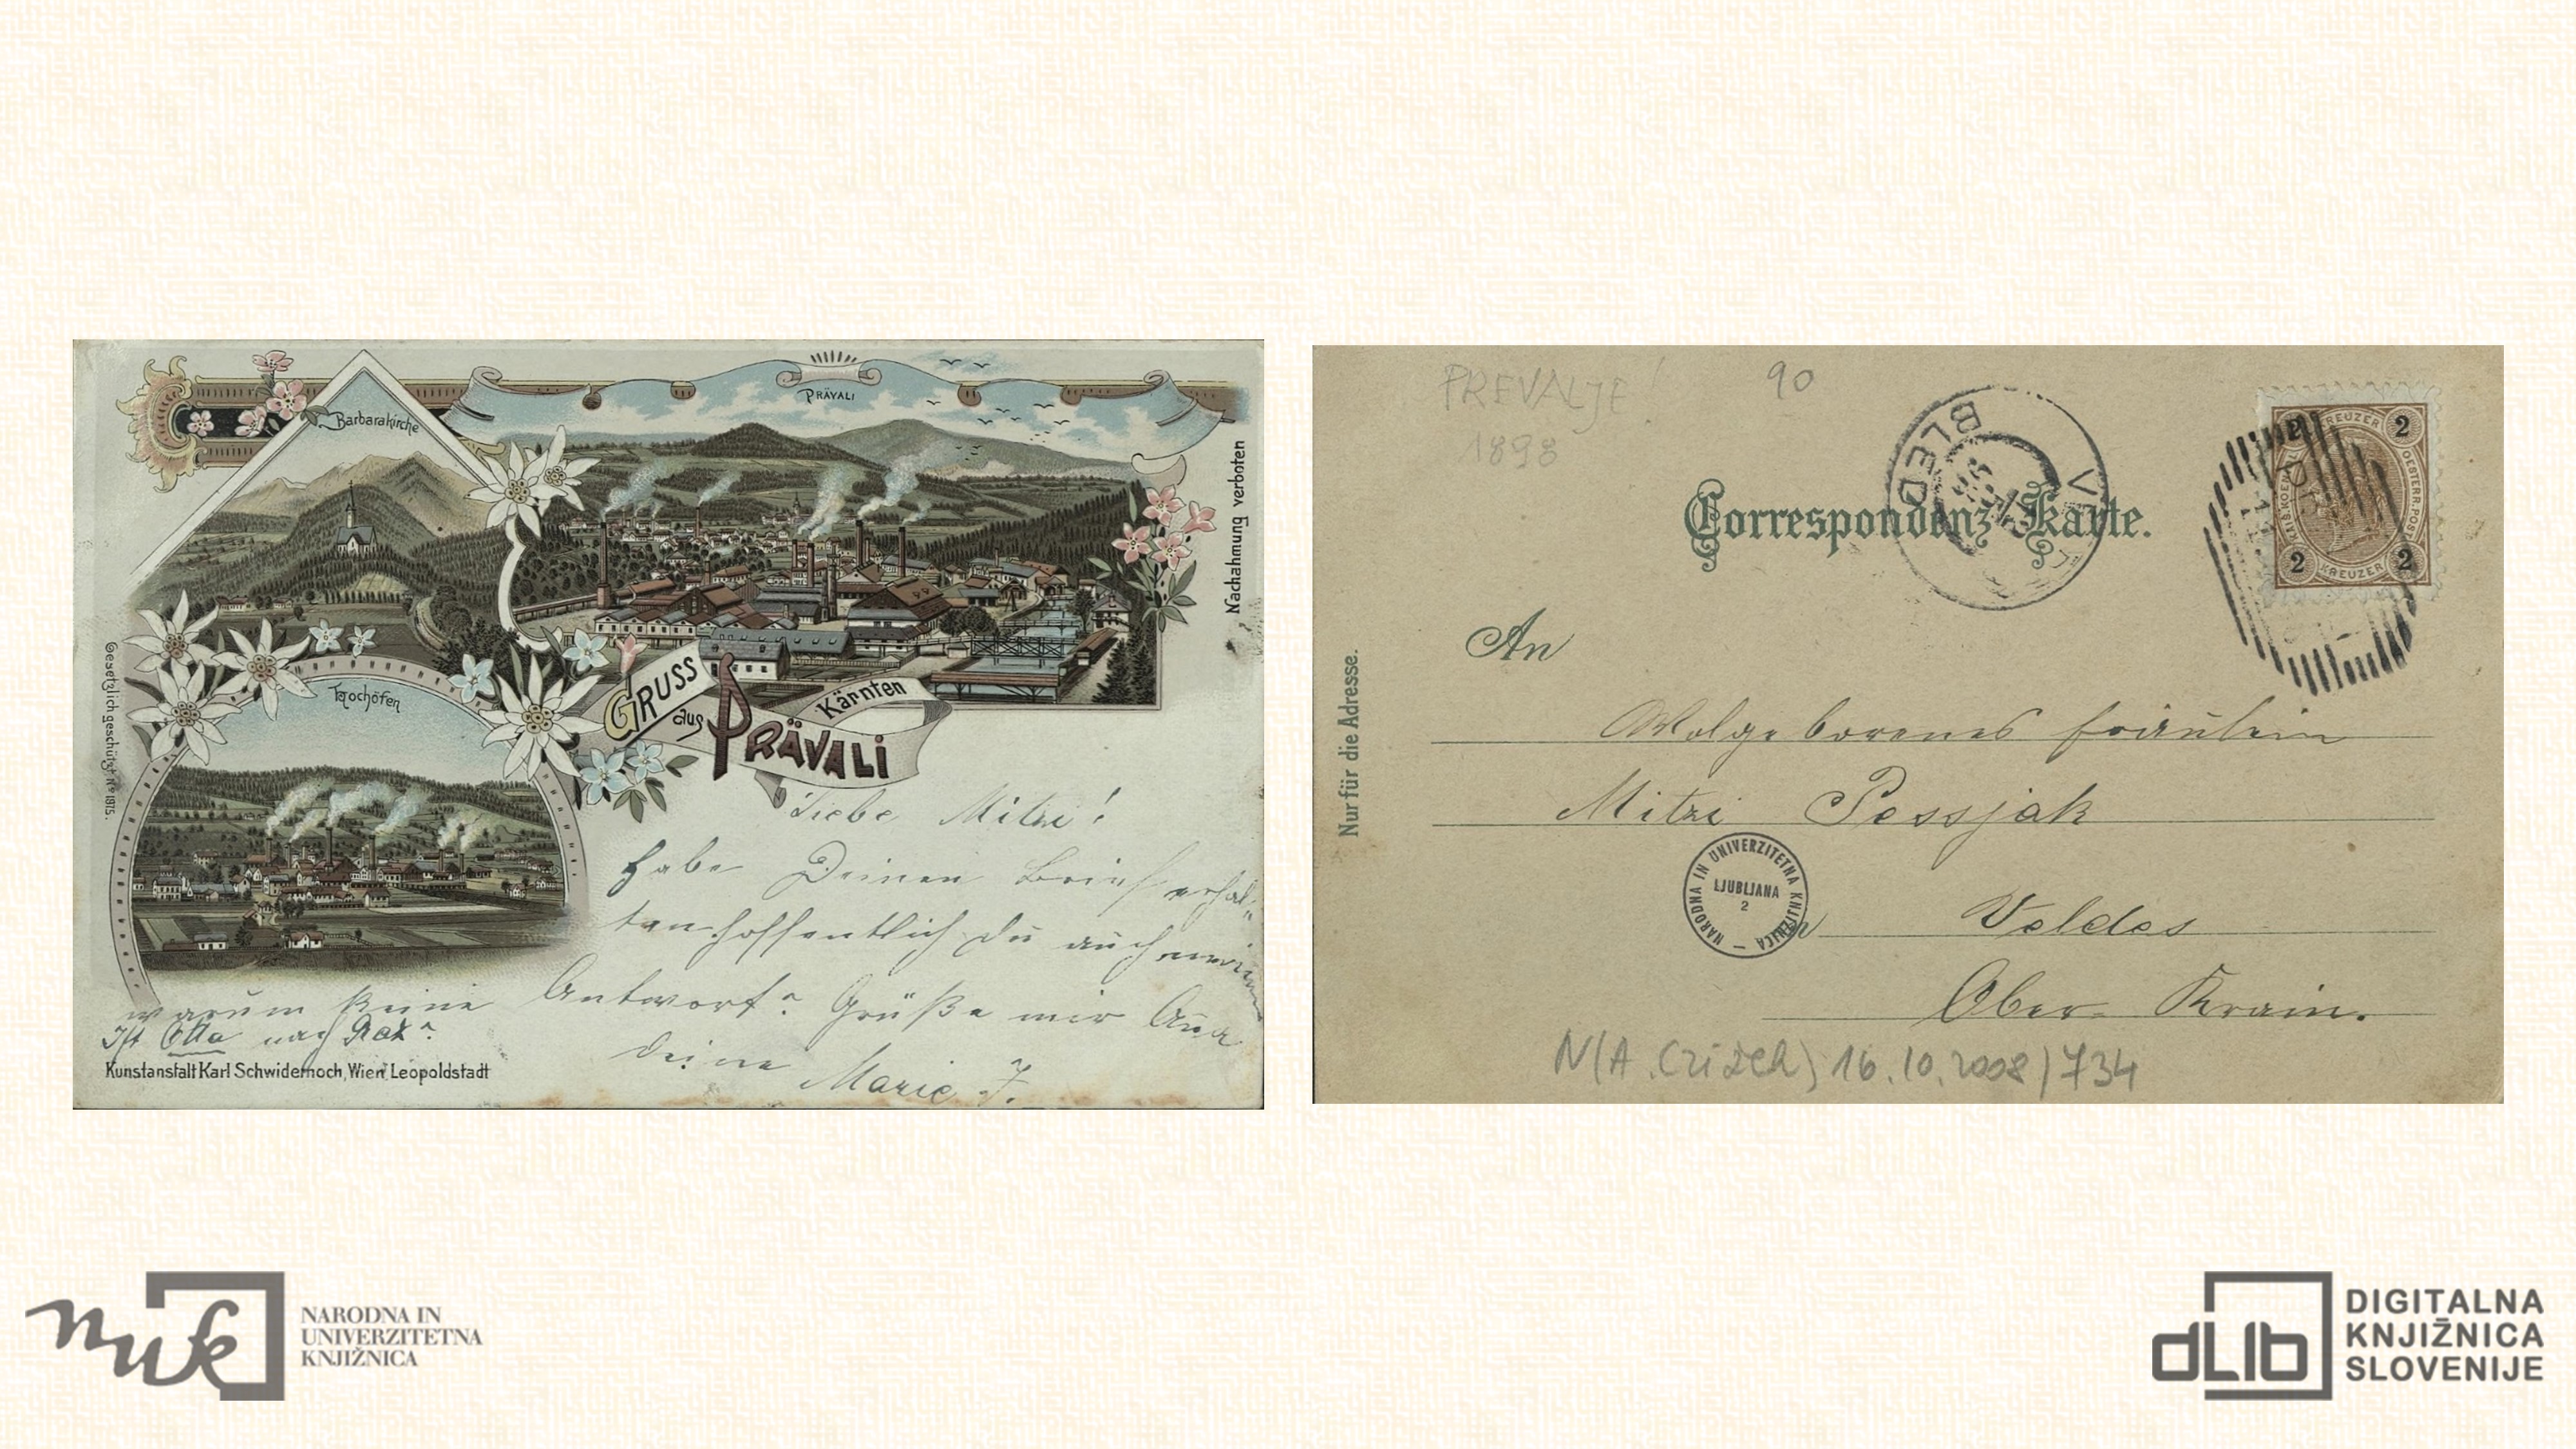 Barbarakirche
PRÄVALI
Nachahmung verboten
Gesetzlich geschützt No 1875.
Hochöfen
GRUSS
aus
PRÄVALI
Kärnten
Liebe Mitzi!
Habe Deinen Brief erhal-
ten hoffentlich Du auch
warum keine Antwort? Grüße mir
Ist nach
Deine Marie J.
Kunstanstalt Karl Schwidernoch, Wien, Leopoldstadt
PREVALJE
1898
90
BLED
Correspondenz-Karte.
2 KREUZER 2
KAIS. KOEN. OESTERR. POST
2 KREUZER 2
Nur für die Adresse.
An
Wolgeborenes Fräulein
Mitzi Pessjak
NARODNA IN UNIVERZITETNA KNJIŽNICA
LJUBLJANA
2
in Veldes
Ober-Krain.
N(A. Czižek) 16.10.2008/734
nuk
NARODNA IN
UNIVERZITETNA
KNJIŽNICA
dLib
DIGITALNA
KNJIŽNICA
SLOVENIJE